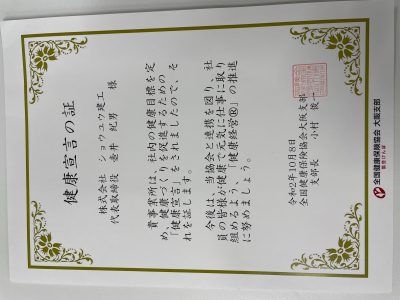 健康宣言の証
株式会社 ショウユウ建工
代表取締役 壺井 紀男 様
貴事業所は、社内の健康目標を定
め、健康づくりを促進するための
「健康宣言」をされましたので、そ
れを証します。
今後は、当協会と連携を図り、社
員の皆様が健康で元気に仕事に取り
組めるよう、「健康経営®」の推進
に努めましょう。
令和2年10月8日
全国健康保険協会大阪支部
支部長 小村 俊一
全国健康保険協会 大阪支部
協会けんぽ